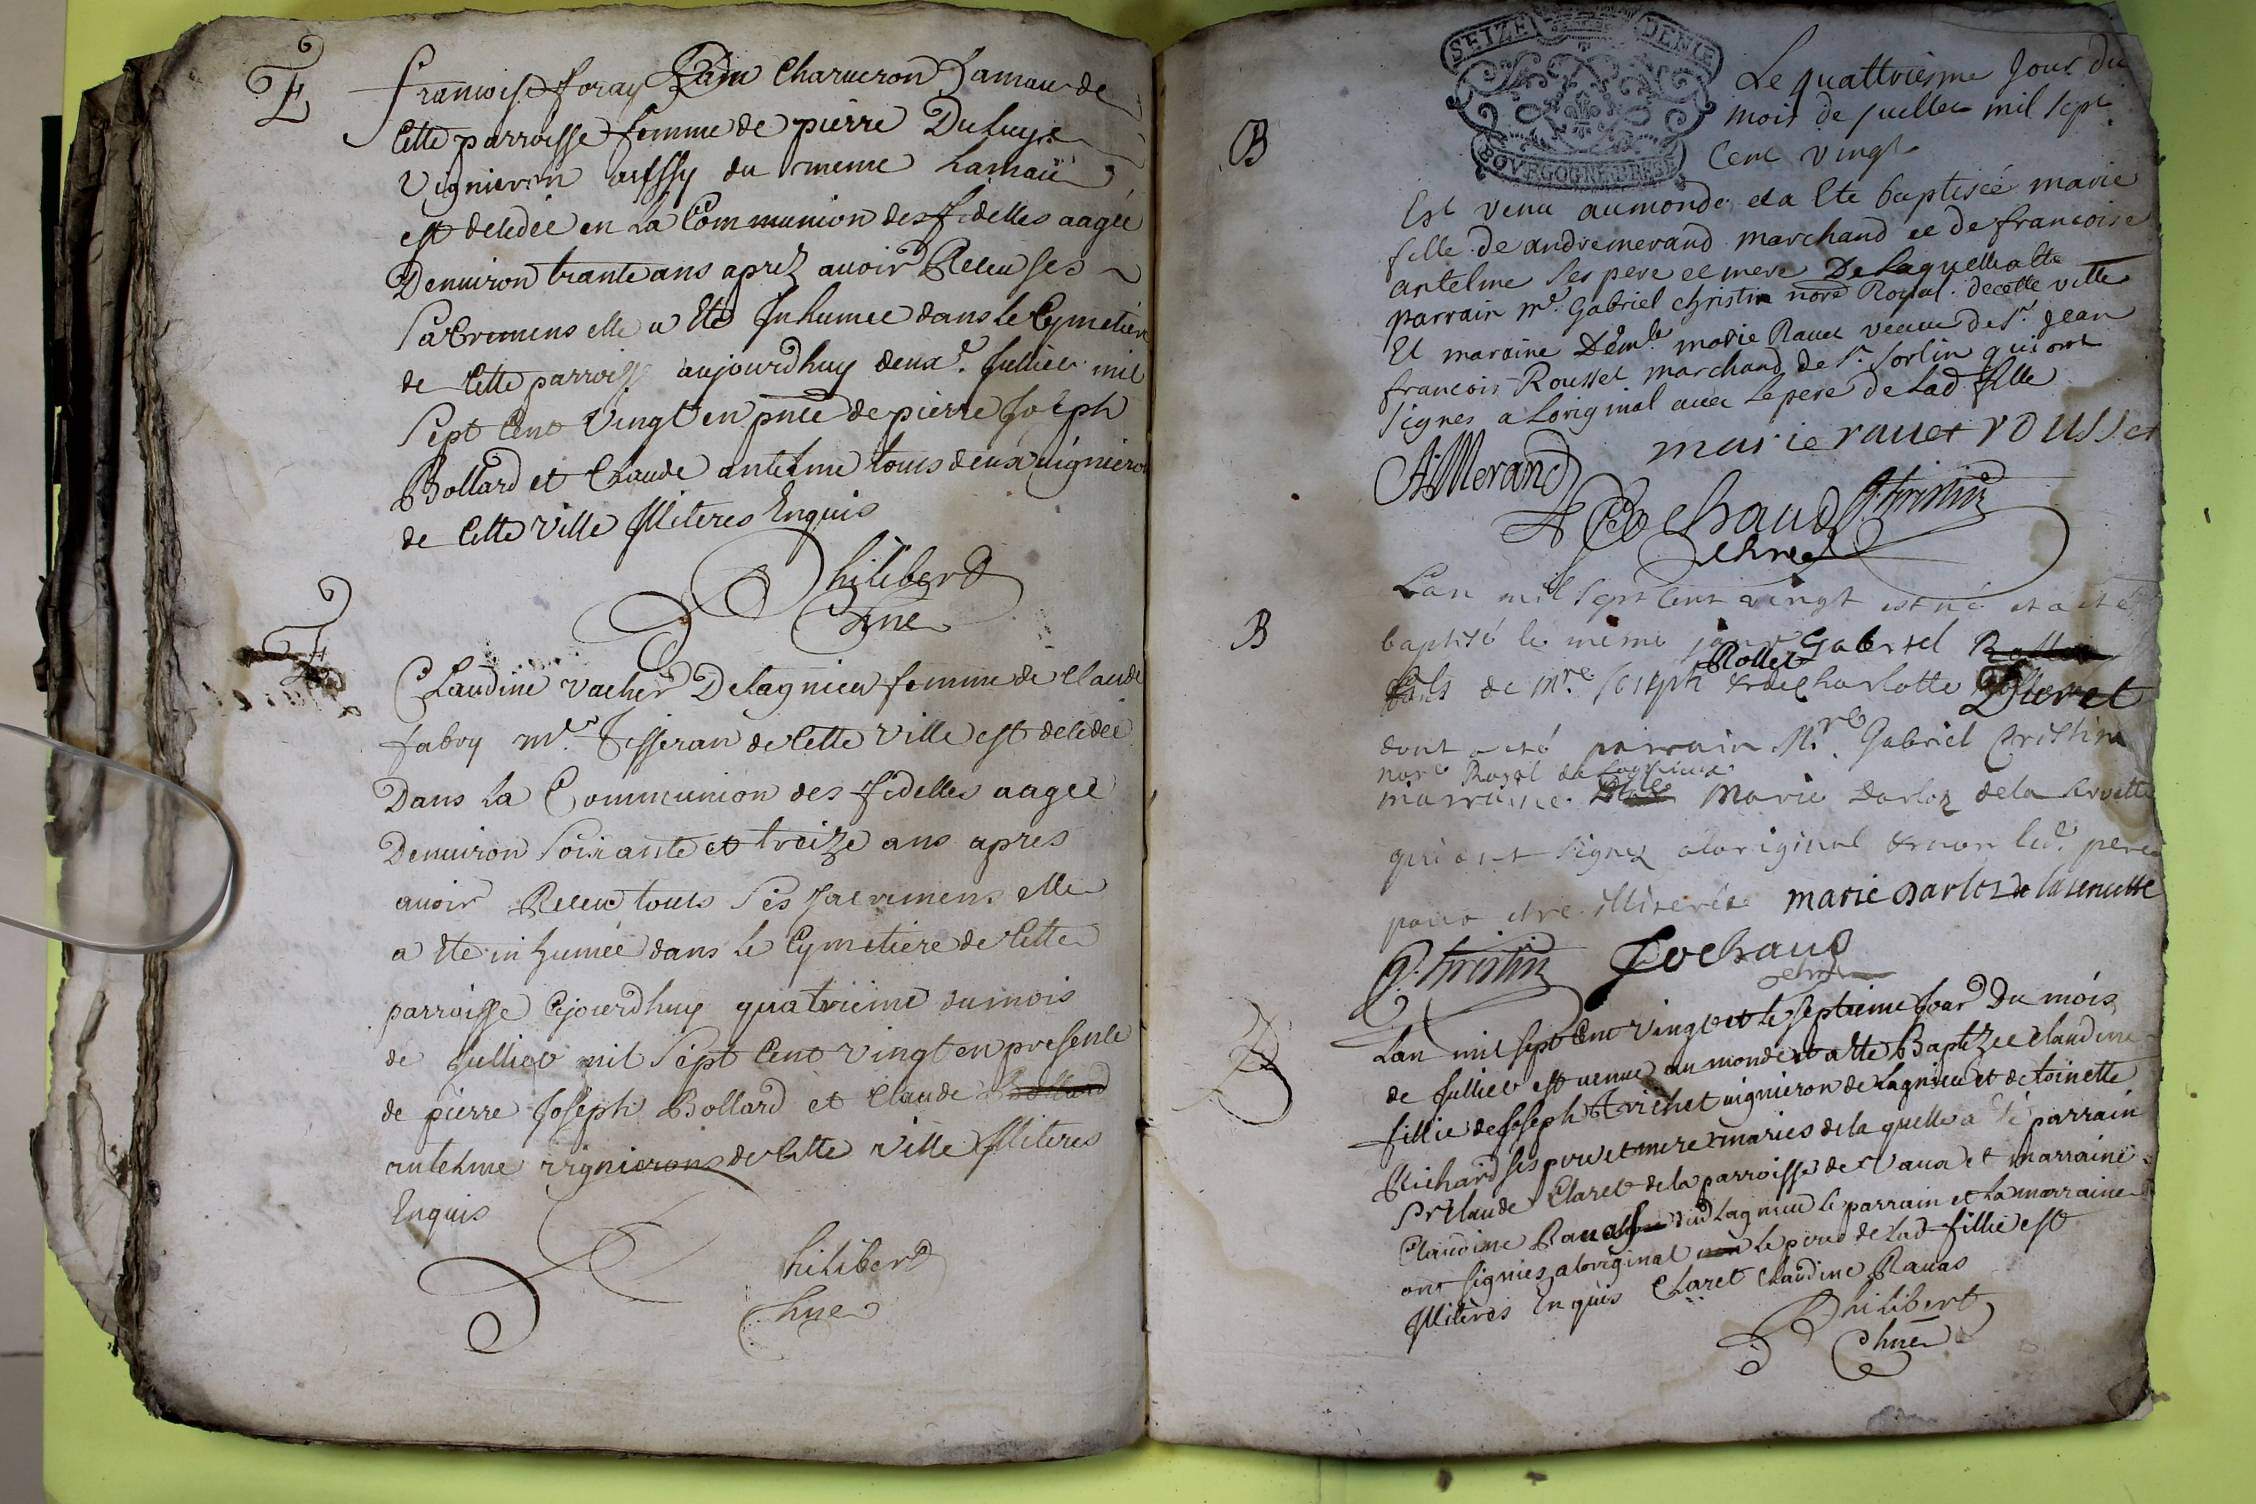 E
françoise foray Charveron hamau de
Cette parroisse femme de pierre Duluys
Vignieron aussy du meme hamau
est decedée en la Communion des fidelles aagée
Denuiron trante ans aprez auoir Receu ses
Sacremens elle a Eté Inhumée dans le Cymetiere
de Cette parroisse aujourdhuy deuxe. Jullier mil
Sept Cent Vingt en pnce de pierre Joseph
Bollard et Claude antelme tous deux vignierons
de Cette Ville Illiteres Enquis
Philibert
Chne
E
Claudine vacher Delagnieu femme de Claude
fabry mr. Tisseran de Cette Ville est decedée
Dans la Communion des fidelles aagée
Denuiron Soixante et treize ans apres
auoir Receu touts Ses Sacremens elle
a Ete inhumée dans le Cymetiere de Cette
parroisse Cejourdhuy quatrieme du mois
de Jullier mil Sept Cent vingt en presence
de pierre Joseph Bollard et Claude Bollard
antelme vignierons de Cette Ville Illiteres
Enquis
Philibert
Chne
SEIZE DENIE
BOVRGOGNE BRESSE
Le quattriesme Jour du
mois de juillet mil Sept
Cent vingt
B
Est venu au monde et a Ete baptisée marie
fille de andre merand marchand et de francoise
antelme Ses pere et mere De laquelle a ete
parrain mr. Gabriel christin nore Royal de cette ville
Et maraine Demlle marie Rauet veuue de Sr. Jean
francois Rousset marchand de St. Sorlin qui ont
signes a Loriginal auec le pere de lad fille
A Merand marie rauet rousset
Cochaud G. Christin
chne
B
Lan mil Sept Cent vingt est né et a été
baptisé le même jour Gabriel
Rollet
fils de mre Joseph & de Charlotte
dont a eté parrain Mre Gabriel Christin
nore Royal de Lagnieu
marraine Marie Darloz dela Servette
qui ont signez a loriginal & non led. pere
pour etre illiterée marie Darloz de la seruette
G. Christin Cochaud
chne
B
Lan mil sept Cent Vingt et le septieme Jour Du mois
de Jullier est venue au monde et a Ete Baptizee Claudine
fillie de Joseph Trichet vignieron de Lagnieu et de toinette
Richard ses pere et mere maries de la quelle a Eté parrain
Sr Claude Claret de la parroisse de Vaux et marraine
Claudine Rauas dud Lagnieu le parrain et la marraine
ont signies a loriginal non le pere de lad fillie est
Illiteres Enquis Claret Claudine Rauas
Philibert
Chne